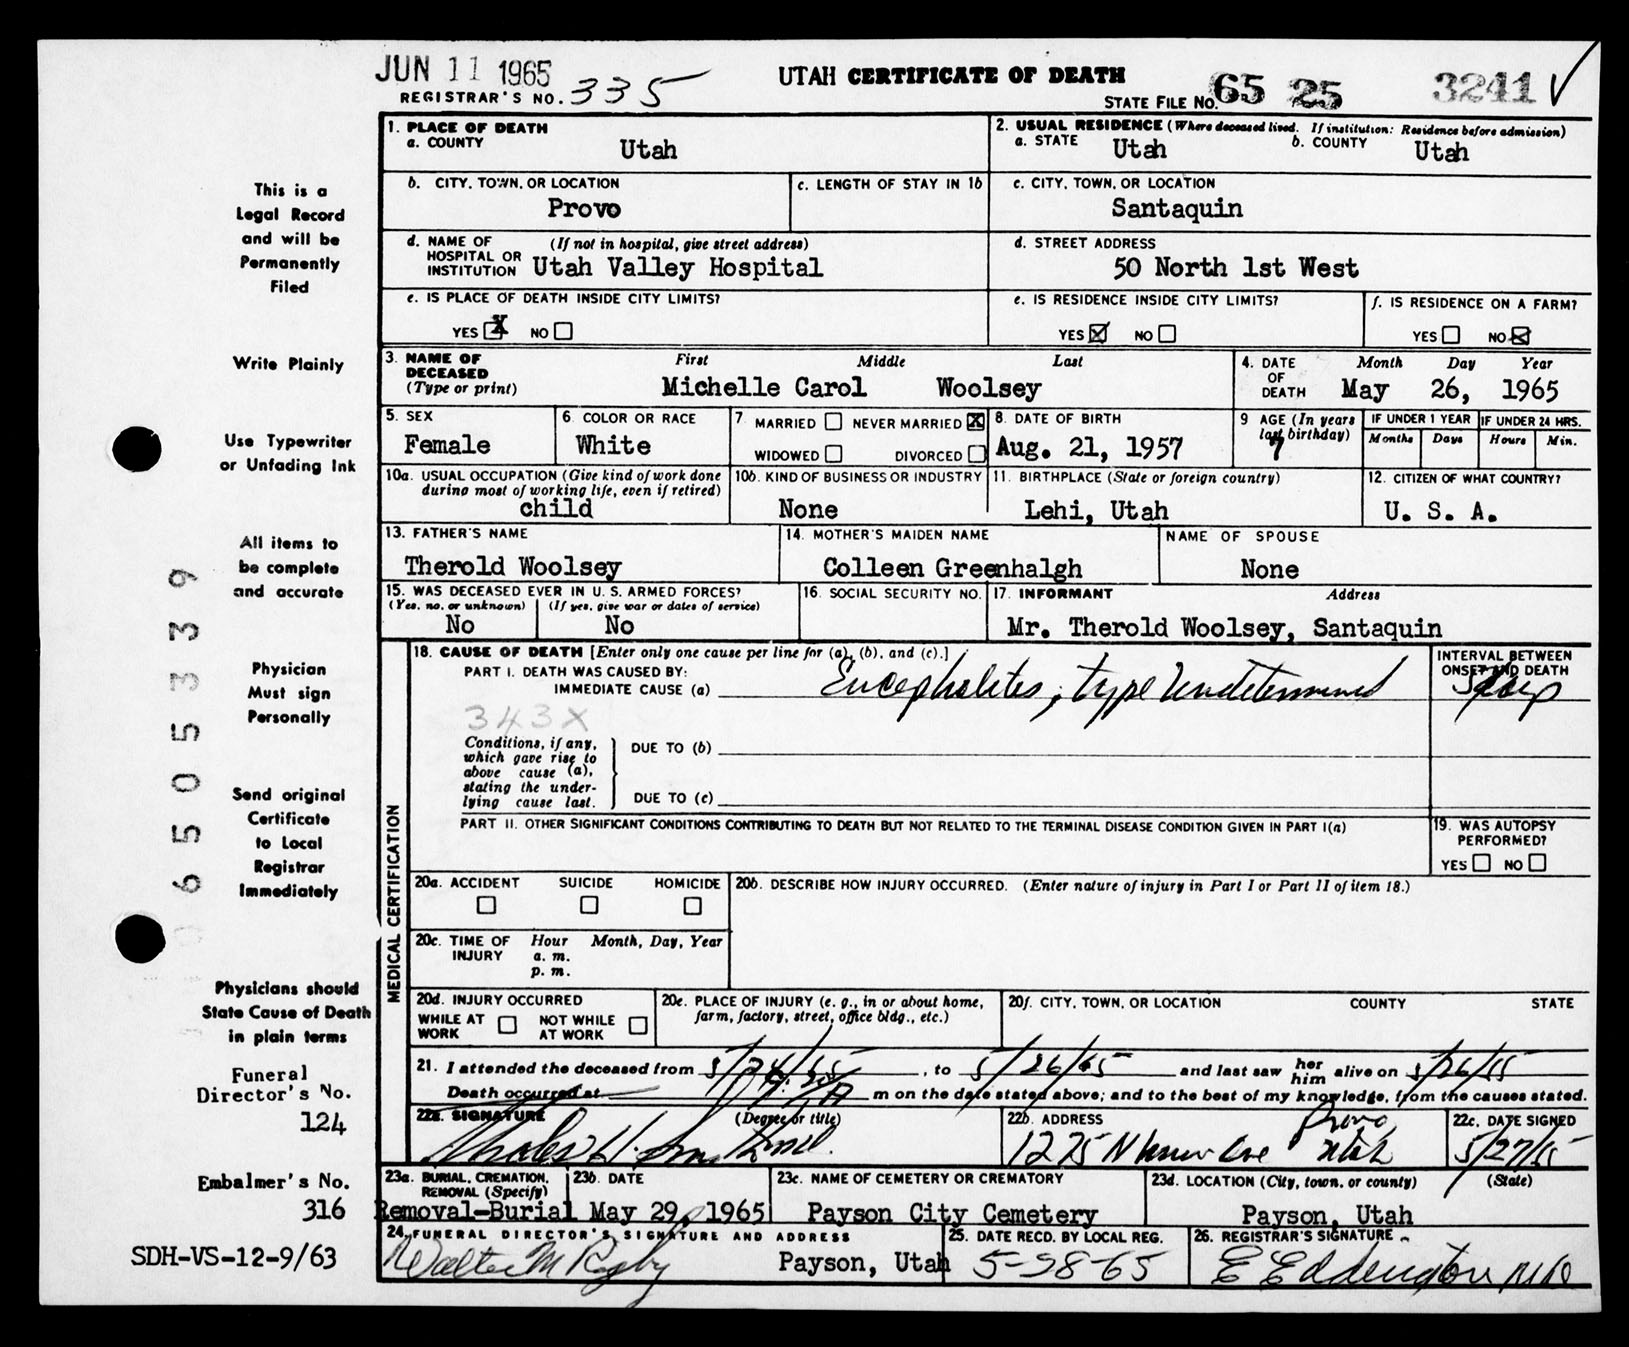 JUN 11 1965
UTAH CERTIFICATE OF DEATH
REGISTRAR'S NO. 335
STATE FILE NO. 65 25 3241 ✓
1. PLACE OF DEATH
a. COUNTY
Utah
2. USUAL RESIDENCE (Where deceased lived. If institution: Residence before admission)
a. STATE
Utah
b. COUNTY
Utah
b. CITY, TOWN, OR LOCATION
Provo
c. LENGTH OF STAY IN 1b
c. CITY, TOWN, OR LOCATION
Santaquin
d. NAME OF HOSPITAL OR INSTITUTION
(If not in hospital, give street address)
Utah Valley Hospital
d. STREET ADDRESS
50 North 1st West
e. IS PLACE OF DEATH INSIDE CITY LIMITS?
YES X NO
e. IS RESIDENCE INSIDE CITY LIMITS?
YES X NO
f. IS RESIDENCE ON A FARM?
YES NO X
3. NAME OF DECEASED
(Type or print)
First Middle Last
Michelle Carol Woolsey
4. DATE OF DEATH
Month Day Year
May 26, 1965
5. SEX
Female
6. COLOR OR RACE
White
7. MARRIED NEVER MARRIED X
WIDOWED DIVORCED
8. DATE OF BIRTH
Aug. 21, 1957
9 AGE (In years last birthday)
7
IF UNDER 1 YEAR
Months Days
IF UNDER 24 HRS.
Hours Min.
10a. USUAL OCCUPATION (Give kind of work done during most of working life, even if retired)
child
10b. KIND OF BUSINESS OR INDUSTRY
None
11. BIRTHPLACE (State or foreign country)
Lehi, Utah
12. CITIZEN OF WHAT COUNTRY?
U. S. A.
13. FATHER'S NAME
Therold Woolsey
14. MOTHER'S MAIDEN NAME
Colleen Greenhalgh
NAME OF SPOUSE
None
15. WAS DECEASED EVER IN U. S. ARMED FORCES?
(Yes, no, or unknown)
No
(If yes, give war or dates of service)
No
16. SOCIAL SECURITY NO.
17. INFORMANT Address
Mr. Therold Woolsey, Santaquin
MEDICAL CERTIFICATION
18. CAUSE OF DEATH [Enter only one cause per line for (a), (b), and (c).]
PART I. DEATH WAS CAUSED BY:
IMMEDIATE CAUSE (a) Encephalites, type Undetermined
INTERVAL BETWEEN ONSET AND DEATH
343X
Conditions, if any, which gave rise to above cause (a), stating the underlying cause last.
DUE TO (b)
DUE TO (c)
PART II. OTHER SIGNIFICANT CONDITIONS CONTRIBUTING TO DEATH BUT NOT RELATED TO THE TERMINAL DISEASE CONDITION GIVEN IN PART I(a)
19. WAS AUTOPSY PERFORMED?
YES NO
20a. ACCIDENT SUICIDE HOMICIDE
20b. DESCRIBE HOW INJURY OCCURRED. (Enter nature of injury in Part I or Part II of item 18.)
20c. TIME OF INJURY
Hour Month, Day, Year
a. m.
p. m.
20d. INJURY OCCURRED
WHILE AT WORK NOT WHILE AT WORK
20e. PLACE OF INJURY (e. g., in or about home, farm, factory, street, office bldg., etc.)
20f. CITY, TOWN, OR LOCATION COUNTY STATE
21. I attended the deceased from 5/24/65, to 5/26/65 and last saw her him alive on 5/26/65
Death occurred at m on the date stated above; and to the best of my knowledge, from the causes stated.
22a. SIGNATURE (Degree or title)
22b. ADDRESS
1275 N Provo Utah
22c. DATE SIGNED
5/27/65
23a. BURIAL, CREMATION, REMOVAL (Specify)
Removal-Burial
23b. DATE
May 29, 1965
23c. NAME OF CEMETERY OR CREMATORY
Payson City Cemetery
23d. LOCATION (City, town, or county) (State)
Payson, Utah
24. FUNERAL DIRECTOR'S SIGNATURE AND ADDRESS
Walter M Rigby
Payson, Utah
25. DATE RECD. BY LOCAL REG.
5-28-65
26. REGISTRAR'S SIGNATURE
E Eddington, MD
This is a
Legal Record
and will be
Permanently
Filed
Write Plainly
Use Typewriter
or Unfading Ink
All items to
be complete
and accurate
Physician
Must sign
Personally
Send original
Certificate
to Local
Registrar
Immediately
Physicians should
State Cause of Death
in plain terms
Funeral
Director's No.
124
Embalmer's No.
316
SDH-VS-12-9/63